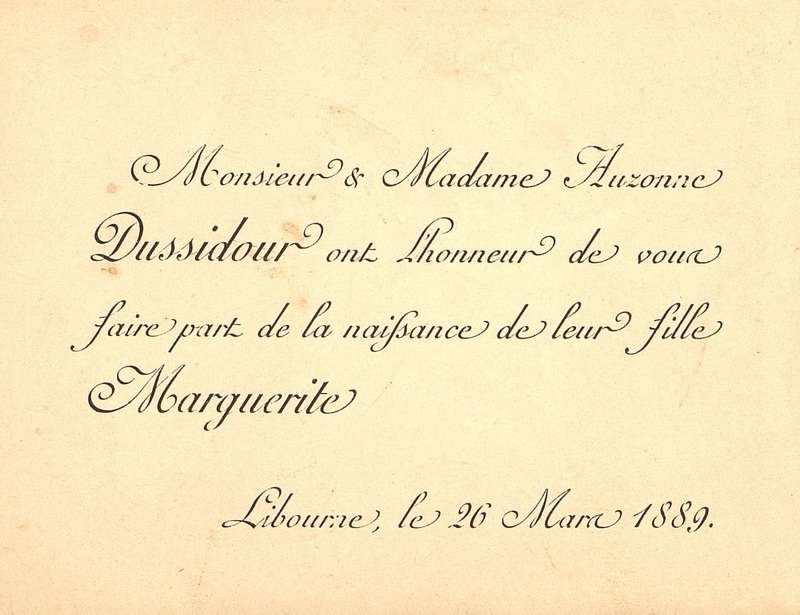 Monsieur & Madame Auzonne
Dussidour ont l'honneur de vous
faire part de la naissance de leur fille
Marguerite
Libourne, le 26 Mars 1889.